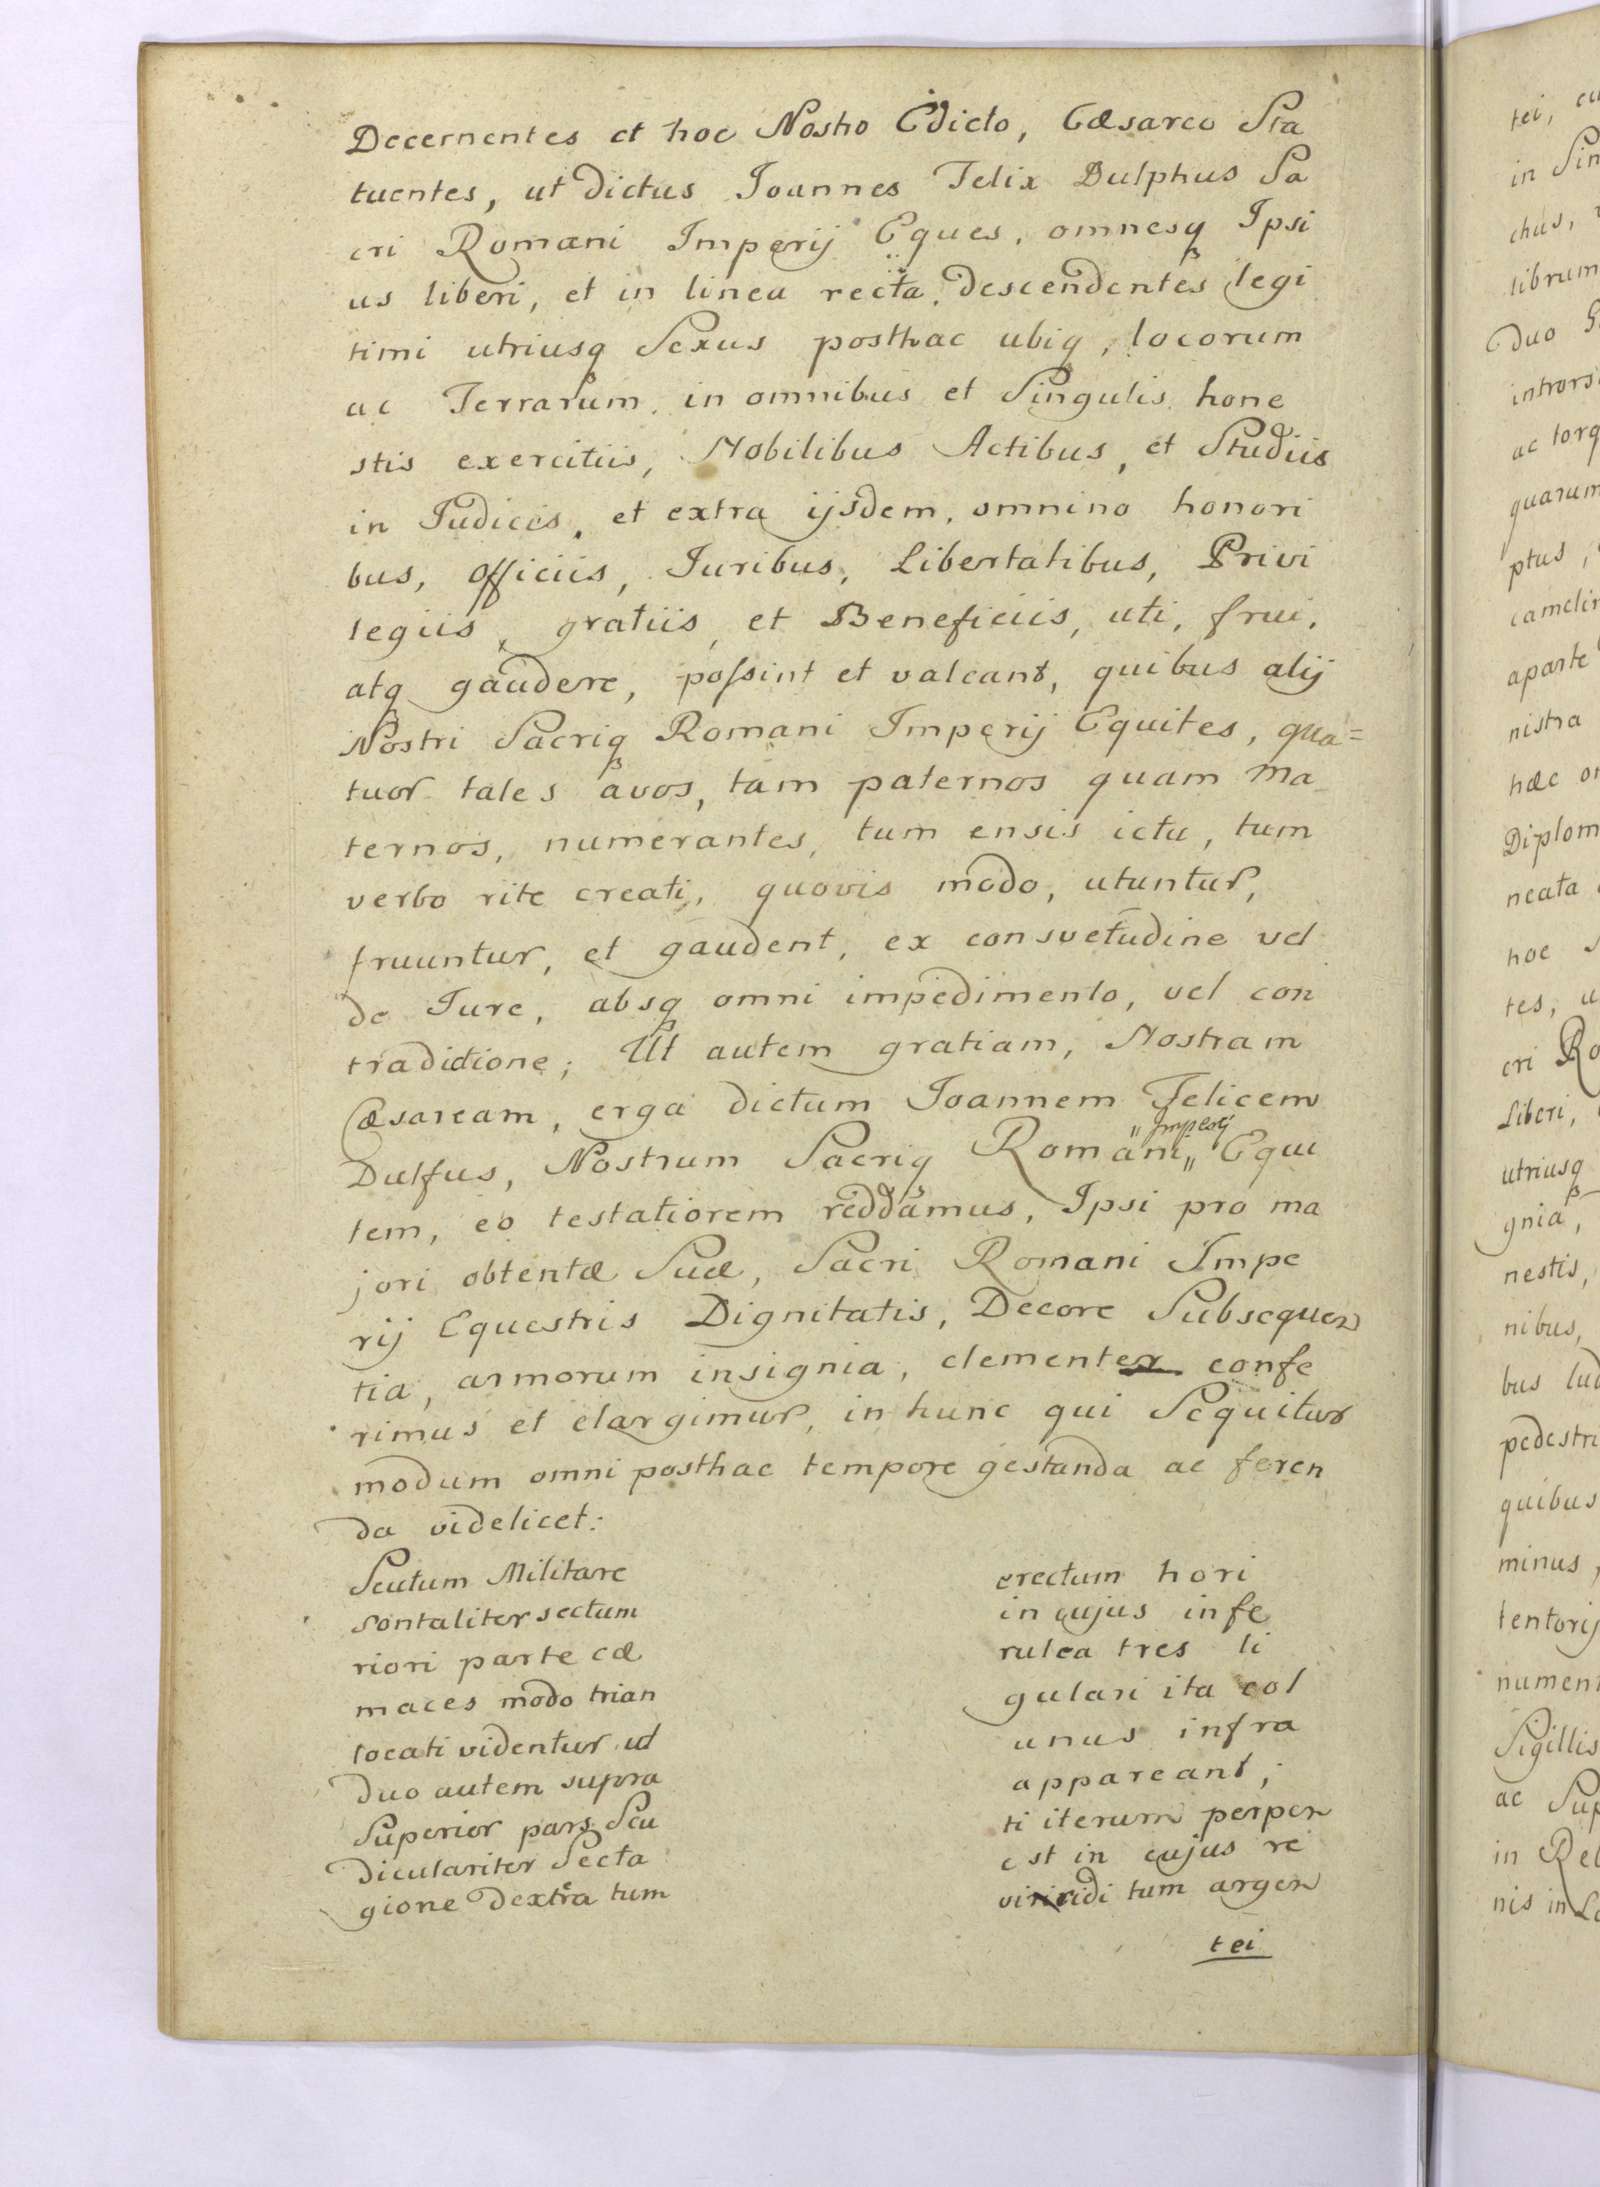 Decernentes et hoc Nostro Edicto, Cæsareo Sta
tuentes, ut dictus Joannes Felix Dulphus Sa
cri Romani Imperij Eques, omnesq Ipsi
us liberi, et in linea recta, descendentes legi
timi utriusq Sexus posthac ubiq, locorum
ac Terrarum, in omnibus et Singulis hone
stis exercitiis, Nobilibus Actibus, et Studiis
in Judiciis, et extra ijsdem, omnino honori
bus, officiis, Juribus, Libertatibus, Privi
legiis, gratiis, et Beneficiis, uti, frui,
atq gaudere, possint et valeant, quibus alij
Nostri Sacriq Romani Imperij Equites, qua=
tuor tales avos, tam paternos quam ma
ternos, numerantes, tum ensis ictu, tum
verbo rite creati, quovis modo, utuntur,
fruuntur, et gaudent, ex consvetudine vel
de Jure, absq omni impedimento, vel con
tradictione; Ut autem gratiam, Nostram
Cæsaream, erga dictum Joannem Felicem
Dulfus, Nostrum Sacriq Romani " Imperij " Equi
tem, eo testatiorem reddamus, Ipsi pro ma
jori obtentæ Suæ, Sacri Romani Impe
rij Equestris Dignitatis, Decore Subsequen
tia, armorum insignia, clementer confe
rimus et elargimur, in hunc qui Sequitur
modum omni posthac tempore gestanda ac feren
da videlicet:
Scutum Militare erectum hori
sontaliter sectum in cujus infe
riori parte cæ rulea tres li
maces modo trian gulari ita col
locati videntur ut unus infra
duo autem supra appareant;
Superior pars Scu ti iterum perpen
diculariter Secta est in cujus re
gione dextra tum viriridi tum argen
tei
tei, cu
in Sin
chus,
librum
duo
introrsu
ac torq
quarum
ptus,
camelin
aparte
nistra
hæc
Diplom
neata
hoc
tes, u
cri Ro
Liberi,
utriusq
gnia,
nestis,
nibus,
bus lud
pedestri
quibus
minus,
tentorij
nument
Sigillis
ac Sup
in Rel
nis in